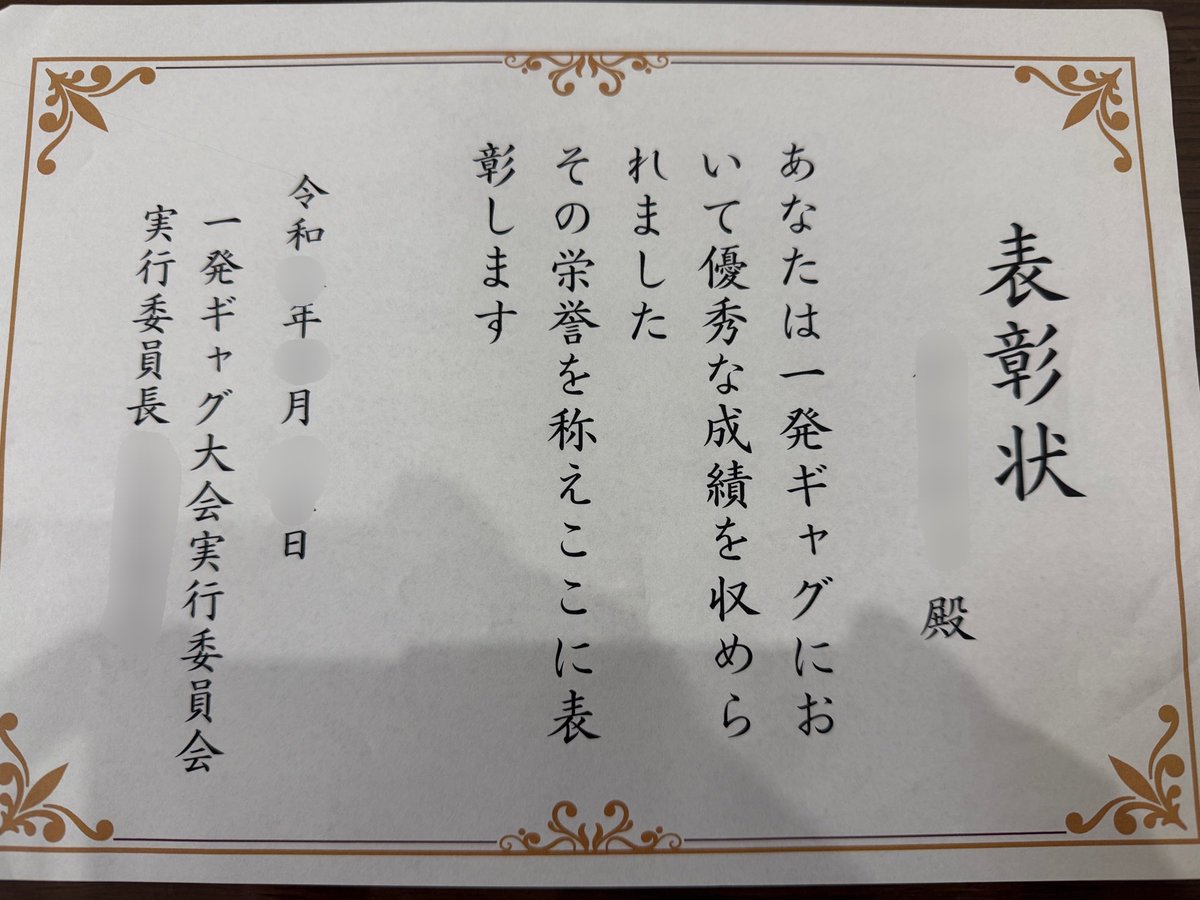 表彰状
殿
あなたは一発ギャグにお
いて優秀な成績を収めら
れました
その栄誉を称えここに表
彰します
令和 年 月 日
一発ギャグ大会実行委員会
実行委員長